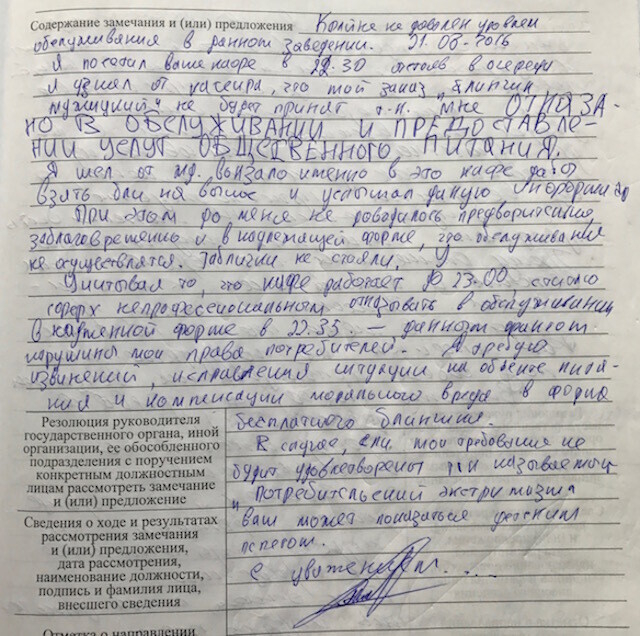 Содержание замечания и (или) предложения Крайне не доволен уровнем
обслуживания в данном заведении. 31.03.2016
Я посетил ваше кафе в 22:30 отстояв в очереди
и узнал от кассира, что мой заказ „блинчик
мужицкий" не будет принят т.к. мне ОТКАЗА-
НО В ОБСЛУЖИВАНИИ И ПРЕДОСТАВЛЕ
НИИ УСЛУГ ОБЩЕСТВЕННОГО ПИТАНИЯ.
Я шел от жд. вокзало именно в это кафе дабы
взять блин на вынос и услышал данную информацию
При этом до меня не доводилось предворительно,
заблаговременно и в надлежащей форме, что обслуживание
не осуществлятся. Таблички не стояли,
Учитывая то, что кафе работает до 23.00, считаю
сверх непрофессиональным отказывать в обслуживании
в категоричной форме в 22.35. — данном фактом
нарушина мои права потребителей. Я требую
извинений, исправления ситуации на объекте пита-
ния и компенсации морального вреда в форме
Резолюция руководителя
государственного органа, иной
организации, ее обособленного
подразделения с поручением
конкретным должностным
лицам рассмотреть замечание
и (или) предложение
бесплатного блинчика.
В случае, если мои требования не
будут удовлетворены так называемый
„потребительский экстримизм"
вам может показаться детским
лепетом.
С уважением....
Сведения о ходе и результатах
рассмотрения замечания
и (или) предложения,
дата рассмотрения,
наименование должности,
подпись и фамилия лица,
внесшего сведения
Отметка о направлении